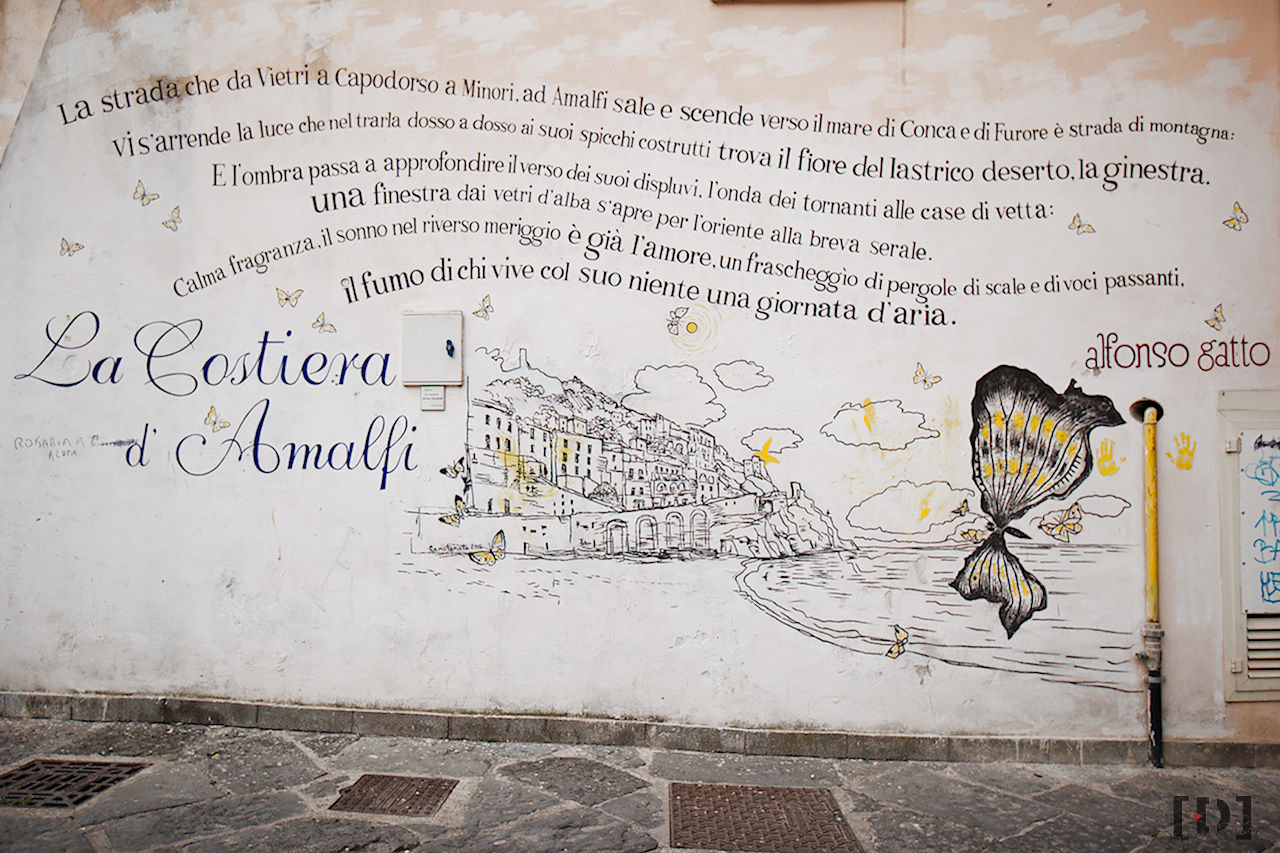 La strada che da Vietri a Capodorso a Minori, ad Amalfi sale e scende verso il mare di Conca e di Furore è strada di montagna:
Vi s'arrende la luce che nel trarla dosso a dosso ai suoi spicchi costrutti trova il fiore del lastrico deserto, la ginestra.
E l'ombra passa a approfondire il verso dei suoi displuvi, l'onda dei tornanti alle case di vetta:
una finestra dai vetri d'alba s'apre per l'oriente alla breva serale.
Calma fragranza, il sonno nel riverso meriggio è già l'amore, un frascheggìo di pergole di scale e di voci passanti,
il fumo di chi vive col suo niente una giornata d'aria.
alfonso gatto
La Costiera
d'Amalfi
ROSARINA
[D]